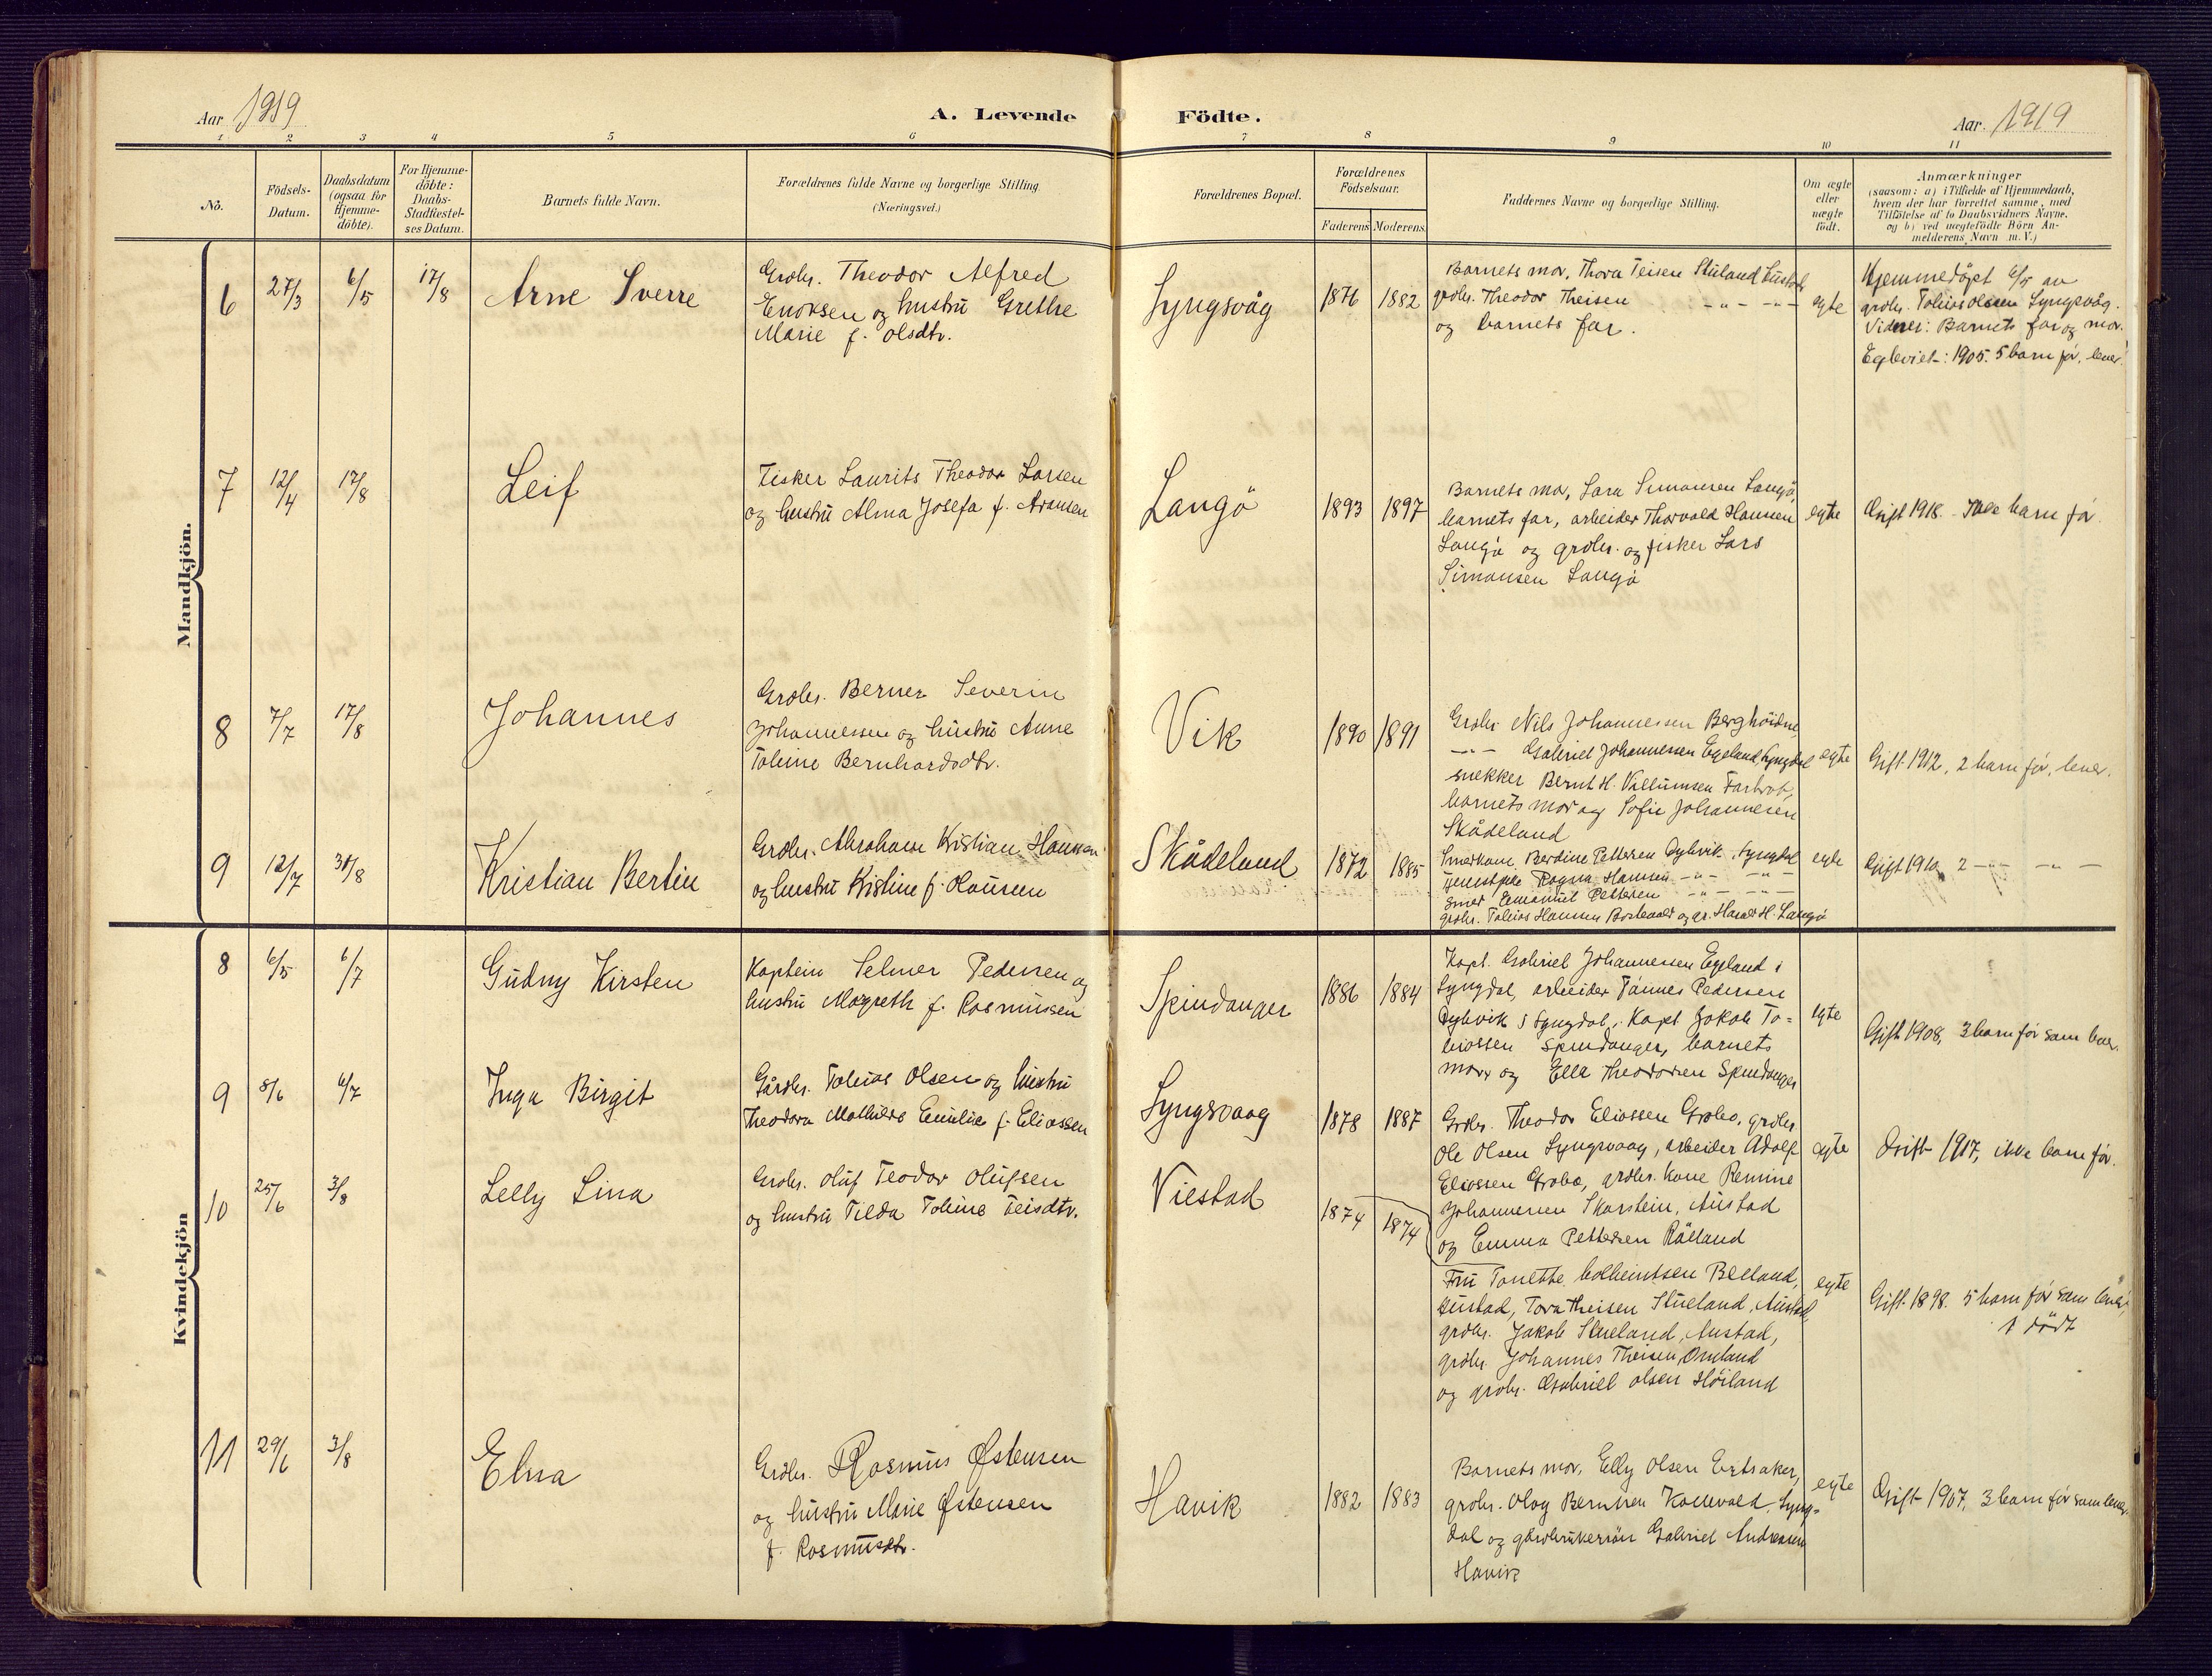 Aar 1919
A. Levende Födte.
Aar. 1919
1 2 3 4 5 6 7 8 9 10 11
No.
Födsels-Datum.
Daabsdatum (ogsaa for Hjemme-döbte).
For Hjemme-döbte: Daabs-Stadfæstel-ses Datum.
Barnets fulde Navn.
Forældrenes fulde Navne og borgerlige Stilling.
(Næringsvei.)
Forældrenes Bopæl.
Forældrenes Födselsaar.
Faderens Moderens
Faddernes Navne og borgerlige Stilling.
Om ægte eller uægte födt.
Anmærkninger
(saasom: a) i Tilfælde af Hjemmedaab,
hvem der har forrettet samme, med
Tilföielse af to Daabsvidners Navne,
og b) ved uægtefödte Börn An-
melderens Navn m. V.)
Mandkjön.
6 27/3 6/5 17/8 Arne Sverre
Grdbr. Theodor Alfred
Enoksen og hustru Grethe
Marie f. Olsdtr.
Lyngsvåg 1876 1882
Barnets mor, Thora Teisen Stuland Austad
grdbr. Theodor Theisen -"- -"-
og barnets far.
egte
Hjemmedöpt 6/5 av
grdbr. Tobias Olsen Lyngsvåg.
Vidner: Barnets far og mor.
Egteviet: 1905. 5 barn för, lever.
7 12/4 17/8 Leif
Fisker Laurits Theodor Larsen
og hustru Alma Josefa f. Aransen
Langö 1893 1897
Barnets mor, Sara Simonsen Langö,
barnets far, arbeider Thorvald Hansen
Langö og grdbr. og fisker Lars
Simonsen Langö
egte
Gift 1918. Ikke barn för.
8 7/7 17/8 Johannes
Grdbr. Berner Severin
Johannessen og hustru Anne
Tobine Bernhardsdtr.
Vik 1890 1891
Grdbr. Nils Johannessen Berghöidne
-"- Gabriel Johannessen Egeland Lyngdal
snekker Bernt H. Vallumsen Farbrot,
barnets mor og Sofie Johannesen
Skådeland
egte
Gift 1912, 2 barn för, lever.
9 12/7 31/8 Kristian Bertin
Grdbr. Abraham Kristian Hansen
og hustru Kistine f. Hansen
Skådeland 1872 1885
Smedkone Berdine Pettersen Dybvik, Lyngdal
tjenestpike Ragna Hansen -"- -"-
Smed Emanuel Pettersen -"- -"-
grdbr. Tobias Hansen og gr. Harald H. Langö
egte
Gift 1910, 2 -"- -"-
Kvindekjön
8 6/5 6/7 Gudny Kirsten
Kaptein Selmer Pedersen og
hustru Magreth f. Rasmussen
Spindanger 1886 1884
Kapt. Gabriel Johannessen Egeland i
Lyngdal, arbeider Tönnes Pedersen
Dybvik i Lyngdal, Kapt Jakob To=
biassen Spindanger, barnets
mor og Ella Theodorsen Spindanger
egte
Gift 1908, 3 barn för som lever.
9 8/6 6/7 Inga Birgit
Gårdbr. Tobias Olsen og hustru
Theodora Mathilde Emilie f. Eliassen
Lyngsvaag 1878 1887
Grdbr. Theodor Eliassen Grobo, grdbr.
Ole Olsen Lyngsvaag, arbeider Adolf
Eliassen Grobo, grdbr. kone Remine
Johannesen Skarstein, Austad
og Emma Pettersen Rälland
egte
Gift 1917, ikke barn för.
10 25/6 3/8 Lelly Lina
Grdbr. Oluf Teodor Olufsen
og hustru Tilda Tobine Teisdtr.
Viestad 1874 1874
Fru Tonette Belland,
Austad, Tora Theisen Stueland, Austad,
grdbr. Jakob Stueland, Austad,
grdbr. Johannes Theisen Omland
og grdbr. Gabriel Olsen Höiland
egte
Gift 1898. 5 barn för som lever,
1 dödt
11 29/6 3/8 Elna
Grdbr. Rasmus Østensen
og hustru Marie Østensen
f. Rasmusdtr.
Havik 1882 1883
Barnets mor, Elly Olsen Eigtsaker,
grdbr. Olay Berntsen Kollevold, Lyng=
dal og gårdbrukersön Gabriel Andressen
Havik
egte
Gift 1907, 3 barn för som lever.